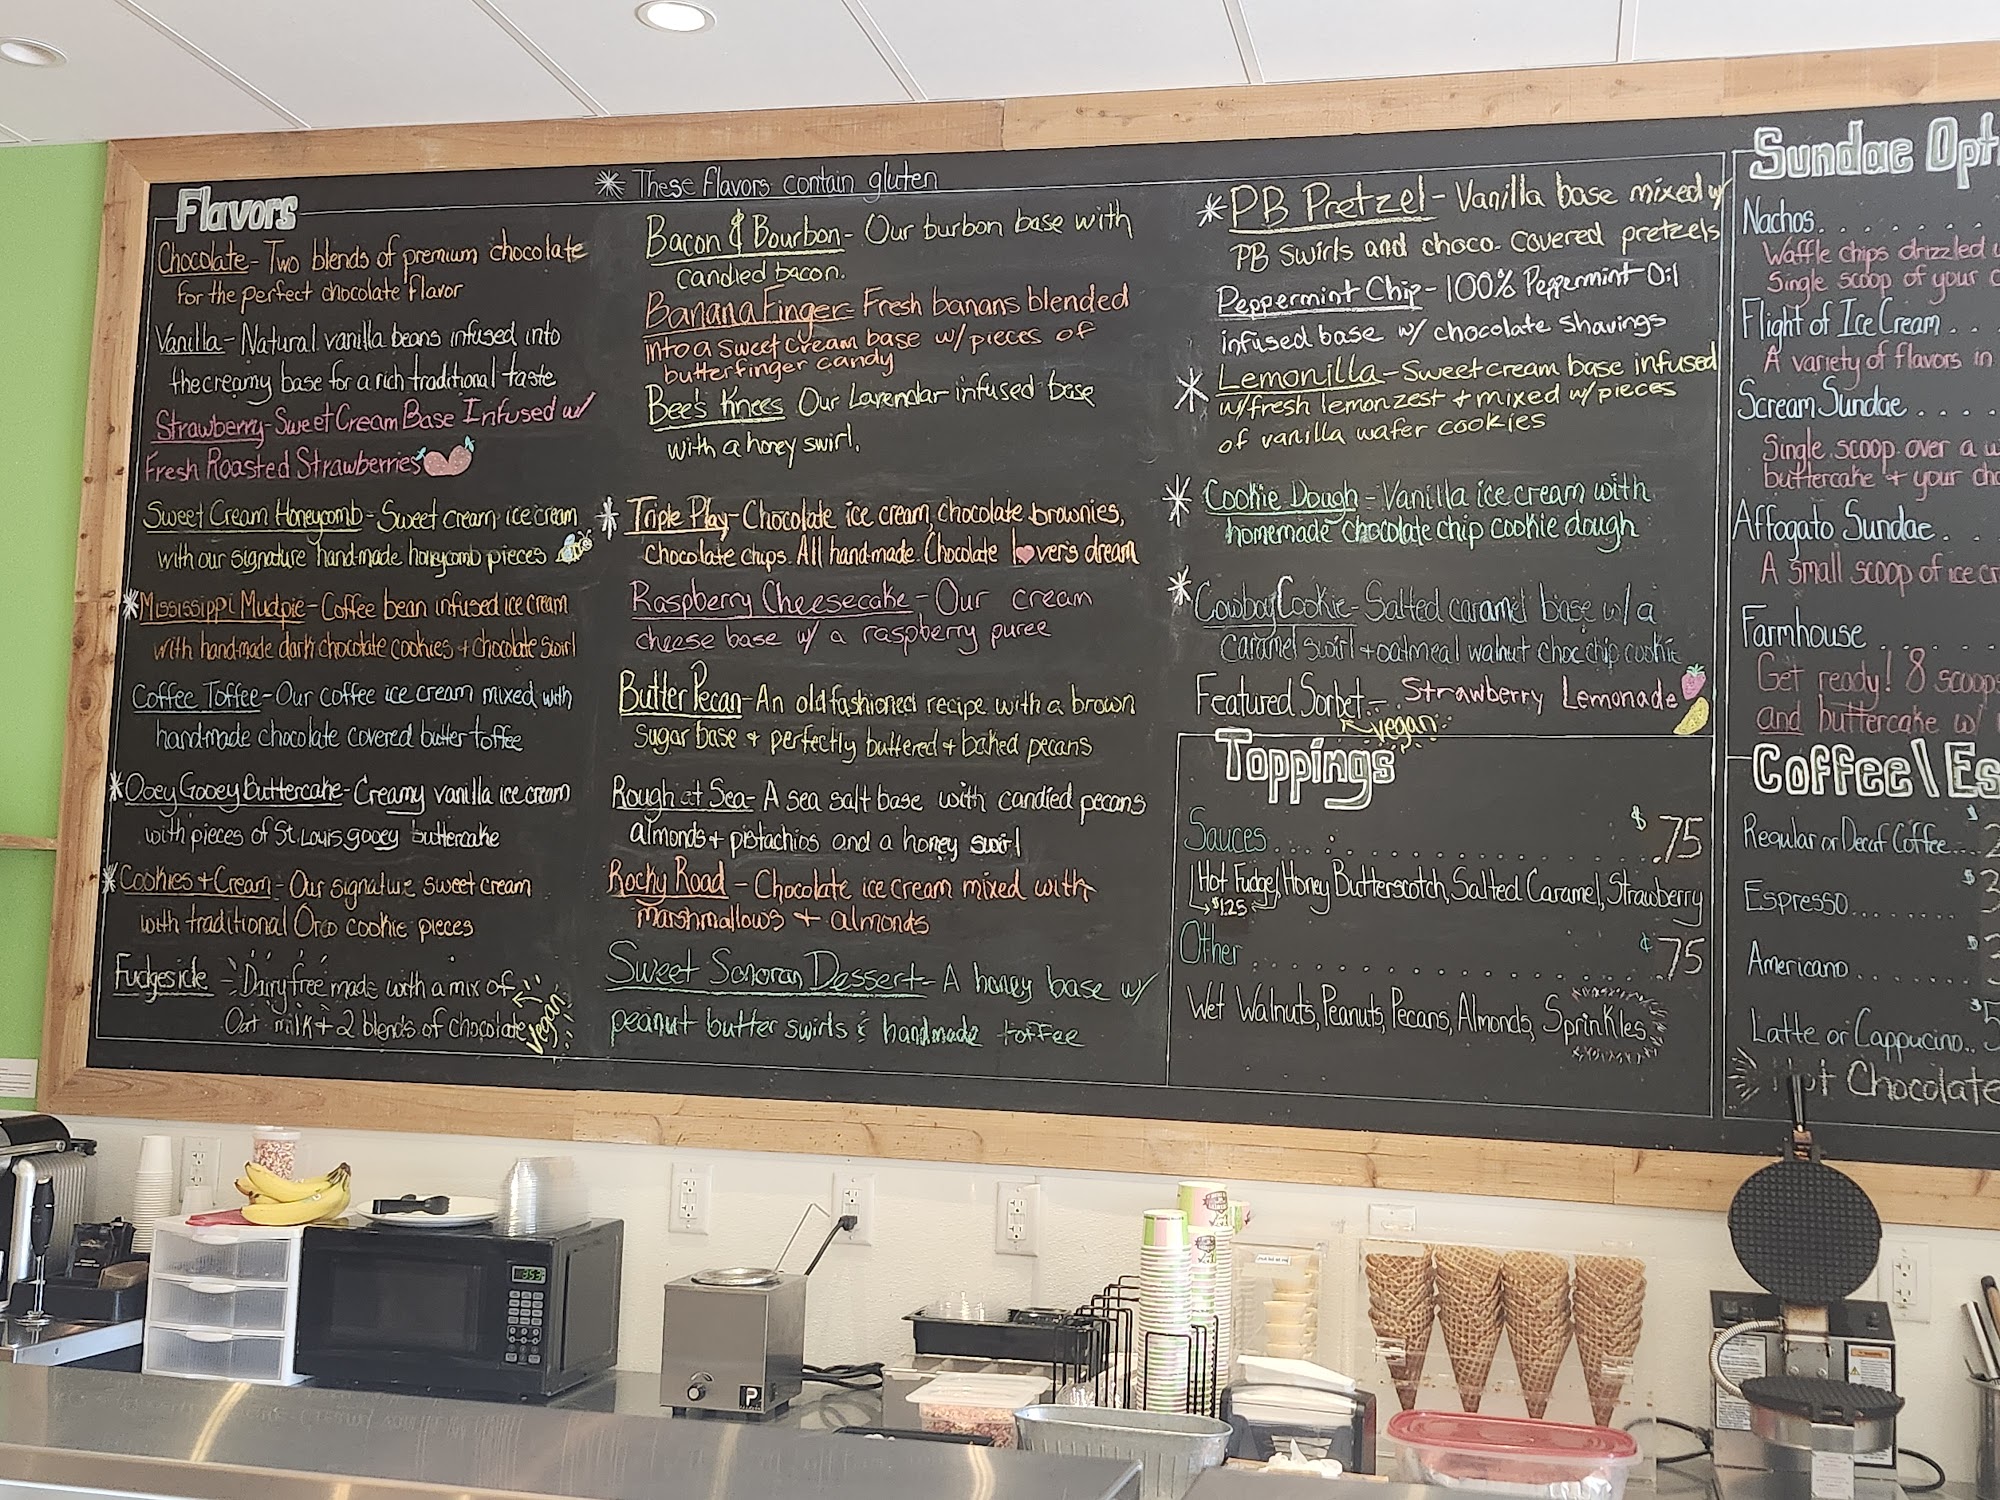 Flavors
✳ These flavors contain gluten
Chocolate - Two blends of premium chocolate
for the perfect chocolate flavor
Vanilla - Natural vanilla beans infused into
the creamy base for a rich traditional taste
Strawberry - Sweet Cream Base Infused w/
Fresh Roasted Strawberries
Sweet Cream Honeycomb - Sweet cream ice cream
with our signature handmade honeycomb pieces
✳ Mississippi Mudpie - Coffee bean infused ice cream
with handmade dark chocolate cookies + chocolate swirl
Coffee Toffee - Our coffee ice cream mixed with
handmade chocolate covered butter toffee
✳ Ooey Gooey Buttercake - Creamy vanilla ice cream
with pieces of St. Louis gooey buttercake
✳ Cookies + Cream - Our signature sweet cream
with traditional Oreo cookie pieces
Fudgesicle - Dairy free made with a mix of
Oat milk + 2 blends of chocolate
vegan
Bacon & Bourbon - Our burbon base with
candied bacon.
Banana Finger - Fresh banans blended
into a sweet cream base w/ pieces of
butterfinger candy
Bee's Knees Our Lavendar infused base
with a honey swirl.
✳ Triple Play - Chocolate ice cream, chocolate brownies,
chocolate chips. All handmade. Chocolate lover's dream
Raspberry Cheesecake - Our cream
cheese base w/ a raspberry puree
Butter Pecan - An old fashioned recipe with a brown
sugar base + perfectly buttered + baked pecans
Rough at Sea - A sea salt base with candied pecans
almonds + pistachios and a honey swirl
Rocky Road - Chocolate ice cream mixed with
marshmallows + almonds
Sweet Sonoran Dessert - A honey base w/
peanut butter swirls & handmade toffee
✳ PB Pretzel - Vanilla base mixed w/
PB swirls and choco. covered pretzels
Peppermint Chip - 100% Peppermint Oil
infused base w/ chocolate shavings
✳ Lemonilla - Sweet cream base infused
w/ fresh lemon zest + mixed w/ pieces
of vanilla wafer cookies
✳ Cookie Dough - Vanilla ice cream with
homemade chocolate chip cookie dough
✳ Cowboy Cookie - Salted caramel base w/ a
caramel swirl + oatmeal walnut choc chip cookie
Featured Sorbet - Strawberry Lemonade
vegan
Toppings
Sauces . . . . . . . . . . $ .75
Hot Fudge, Honey Butterscotch, Salted Caramel, Strawberry
$1.25
Other . . . . . . . . . . ¢ 75
Wet Walnuts, Peanuts, Pecans, Almonds, Sprinkles
Sundae Opt
Nachos . . . . . .
Waffle chips drizzled
Single scoop of your
Flight of Ice Cream . . .
A variety of flavors in
Scream Sundae . . . .
Single scoop over a
buttercake + your
Affogato Sundae . .
A small scoop of ice
Farmhouse . . . . . .
Get ready! 8 scoops
and buttercake w/
Coffee\Es
Regular or Decaf Coffee... $2
Espresso....... $
Americano .... $
Latte or Cappucino.. $5
Hot Chocolate
353
P